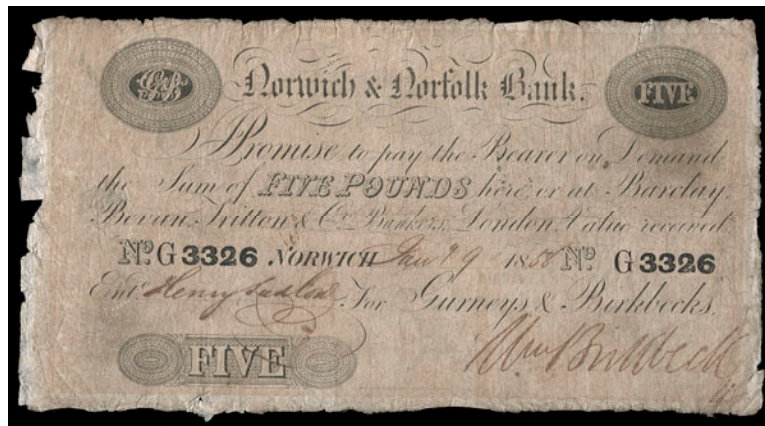 Norwich & Norfolk Bank.
FIVE
I Promise to pay the Bearer on Demand
the Sum of FIVE POUNDS here, or at Barclay,
Bevan, Tritton & Co. Bankers, London. Value received
No. G 3326 NORWICH 9 1858 No. G 3326
Entd. Henry For Gurneys & Birkbecks.
FIVE
Wm Birkbeck